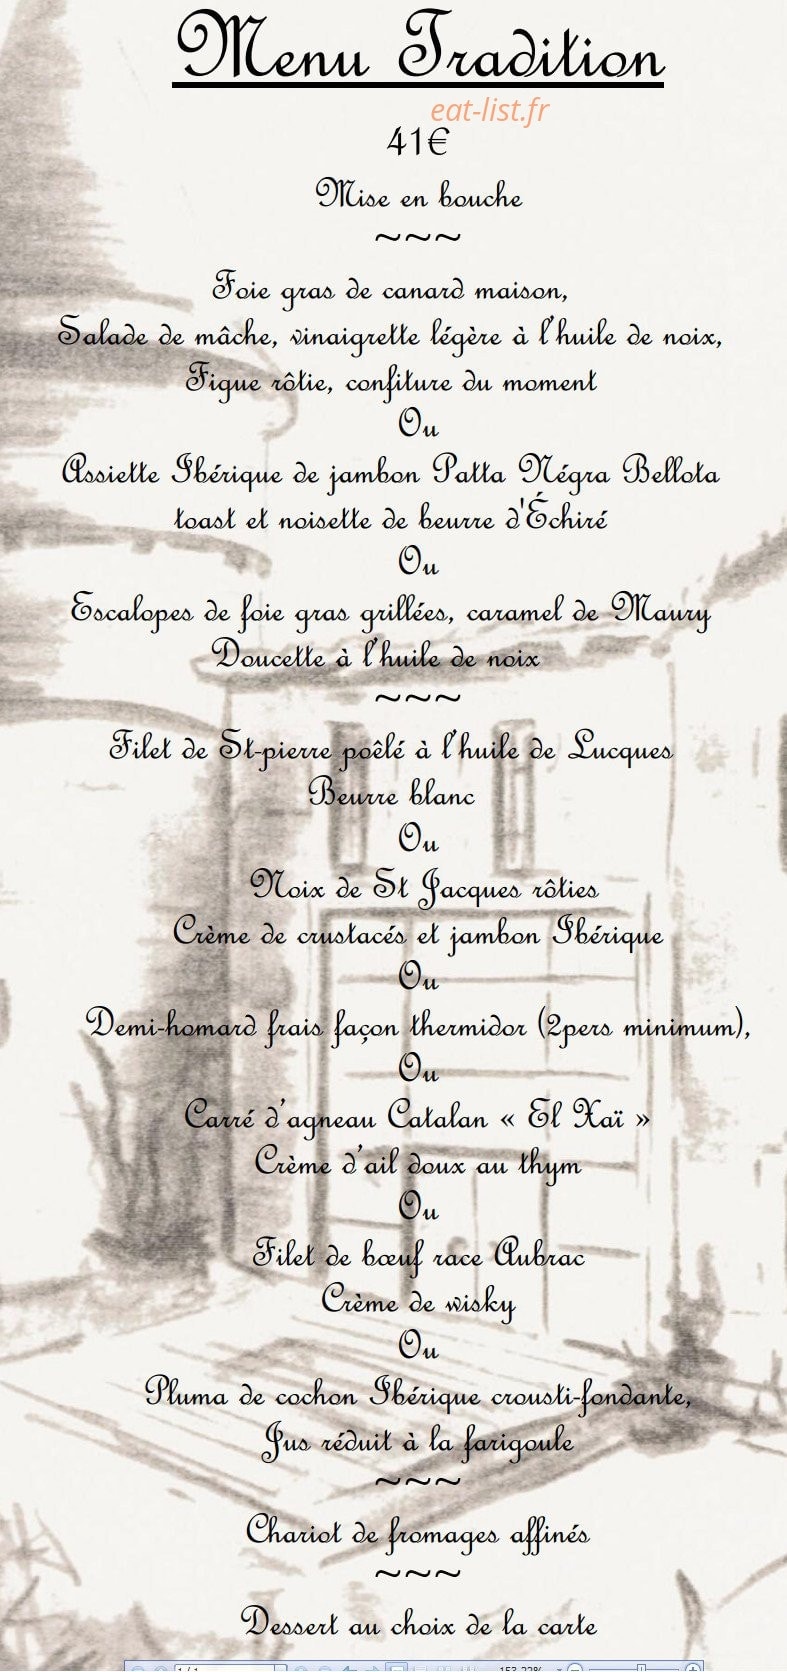 Menu Tradition
eat-list.fr
41€
Mise en bouche
~~~
Foie gras de canard maison,
Salade de mâche, vinaigrette légère à l'huile de noix,
Figue rôtie, confiture du moment
Ou
Assiette Ibérique de jambon Patta Négra Bellota
toast et noisette de beurre d'Échiré
Ou
Escalopes de foie gras grillées, caramel de Maury
Doucette à l'huile de noix
~~~
Filet de St-pierre poêlé à l'huile de Lucques
Beurre blanc
Ou
Noix de St Jacques rôties
Crème de crustacés et jambon Ibérique
Ou
Demi-homard frais façon thermidor (2pers minimum),
Ou
Carré d'agneau Catalan « El Xaï »
Crème d'ail doux au thym
Ou
Filet de bœuf race Aubrac
Crème de wisky
Ou
Pluma de cochon Ibérique crousti-fondante,
Jus réduit à la farigoule
~~~
Chariot de fromages affinés
~~~
Dessert au choix de la carte